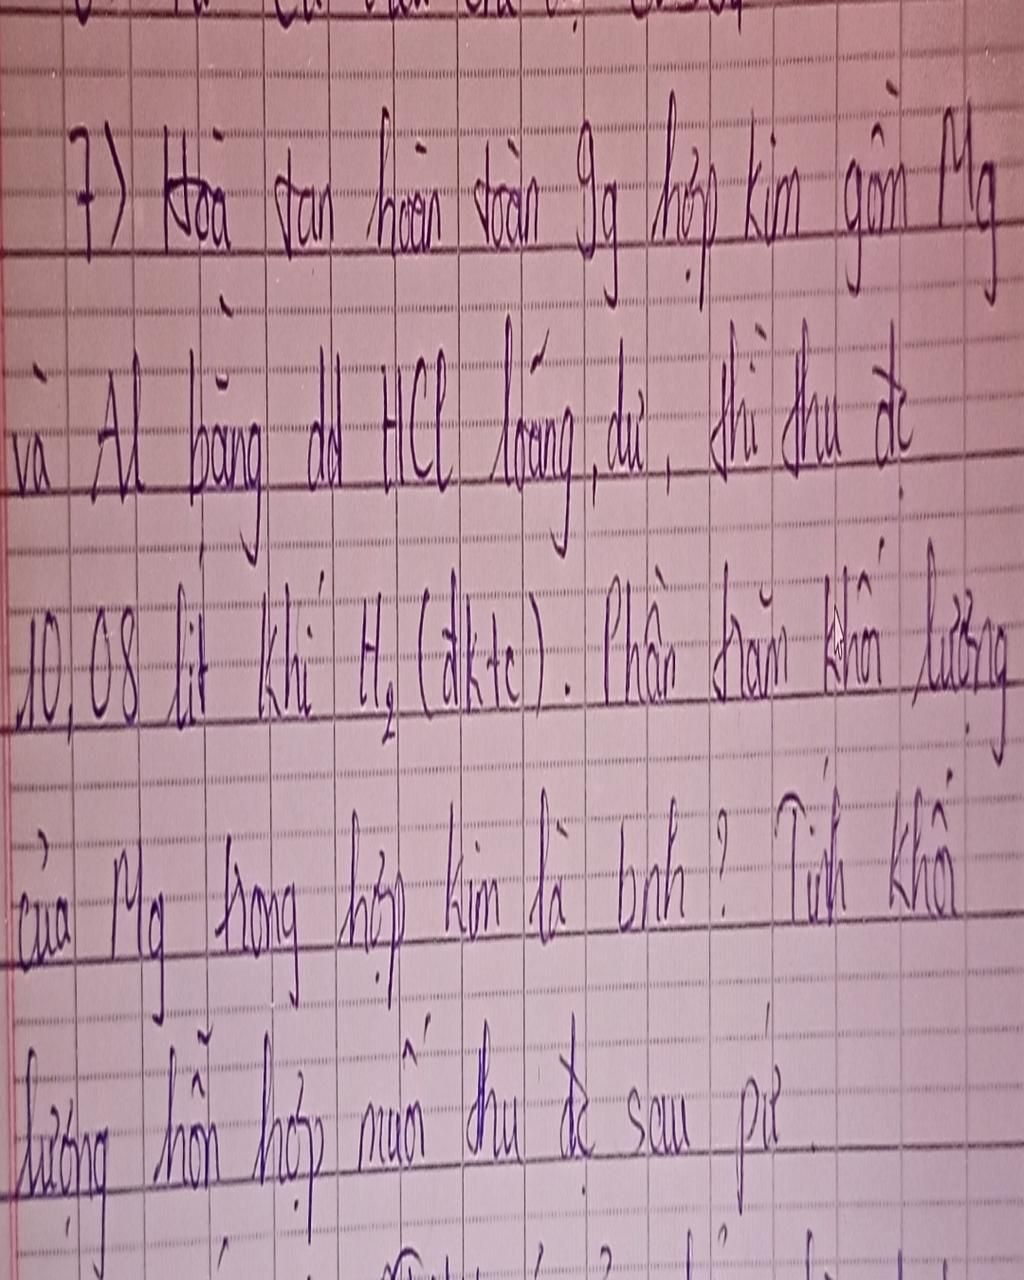 7) Hoà tan hoàn toàn 9g hợp kim gồm Mg
và Al bằng dd HCl loãng, dư, thì thu đc
10,08 lít khí H₂ (đktc). Phần trăm khối lượng
của Mg trong hợp kim là bnh? Tính khối
lượng hỗn hợp muối thu đc sau pứ.